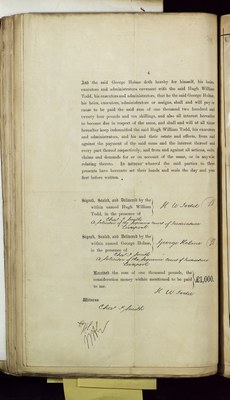 4
And the said George Holme doth hereby for himself, his heirs,
executors and administrators covenant with the said Hugh William
Todd, his executors and administrators, that he the said George Holme
his heirs, executors, administrators or assigns shall and will pay or
cause to be paid the said sum of one thousand two hundred and
twenty four pounds and ten shillings, and also all interest hereafter
to become due in respect of the same, and shall and will at all times
hereafter keep indemnified the said Hugh William Todd, his executors
and administrators, and his and their estate and effects, from and
against the payment of the said sums and the interest thereof and
every part thereof respectively, and from and against all actions, costs,
claims and demands for or on account of the same, or in anywise
relating thereto. In witness whereof the said parties to these
presents have hereunto set their hands and seals the day and year
first before written.
Signed, Sealed, and Delivered by the
within named Hugh William
Todd, in the presence of
H. W. Todd
Signed, Sealed, and Delivered by the
within named George Holme,
in the presence of
George Holme
Received the sum of one thousand pounds, the
consideration money within mentioned to be paid
to me.
£1,000.
H. W. Todd
Witness